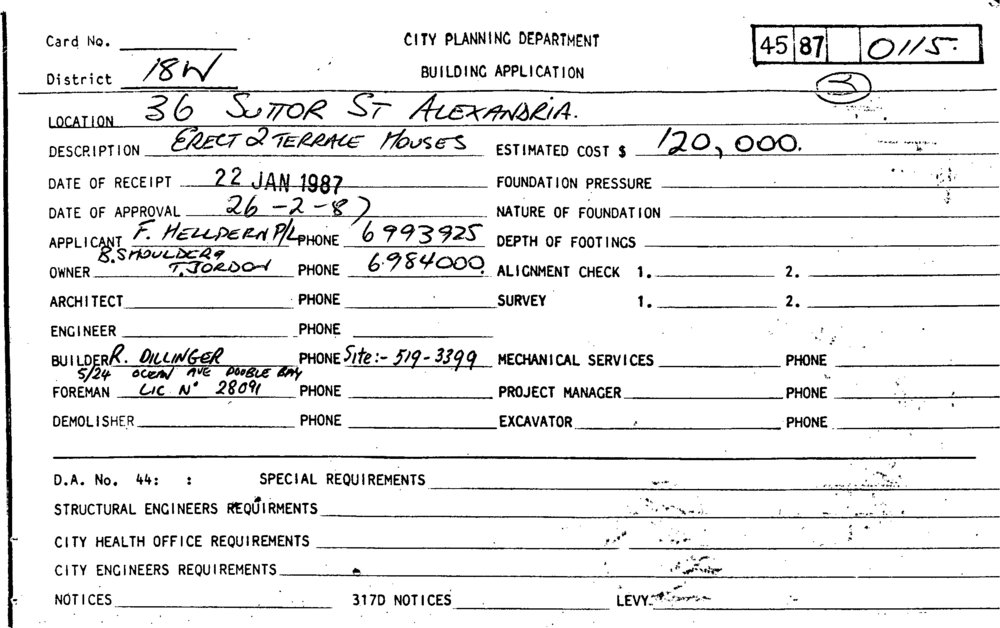 Card No. CITY PLANNING DEPARTMENT 45 87 0115.
District 18W BUILDING APPLICATION 3
LOCATION 36 SUTTOR ST ALEXANDRIA.
DESCRIPTION ERECT 2 TERRACE HOUSES ESTIMATED COST $ 120,000.
DATE OF RECEIPT 22 JAN 1987 FOUNDATION PRESSURE
DATE OF APPROVAL 26-2-87 NATURE OF FOUNDATION
APPLICANT F. HELLPERN P/L PHONE 6993925 DEPTH OF FOOTINGS
B. SHOULDERS
OWNER T. JORDON PHONE 6984000. ALIGNMENT CHECK 1. 2.
ARCHITECT PHONE SURVEY 1. 2.
ENGINEER PHONE
BUILDER R. DILLINGER PHONE Site:- 519-3399 MECHANICAL SERVICES PHONE
5/24 OCEAN AVE DOUBLE BAY
FOREMAN LIC N° 28091 PHONE PROJECT MANAGER PHONE
DEMOLISHER PHONE EXCAVATOR PHONE
D.A. No. 44: : SPECIAL REQUIREMENTS
STRUCTURAL ENGINEERS REQUIRMENTS
CITY HEALTH OFFICE REQUIREMENTS
CITY ENGINEERS REQUIREMENTS
NOTICES 317D NOTICES LEVY